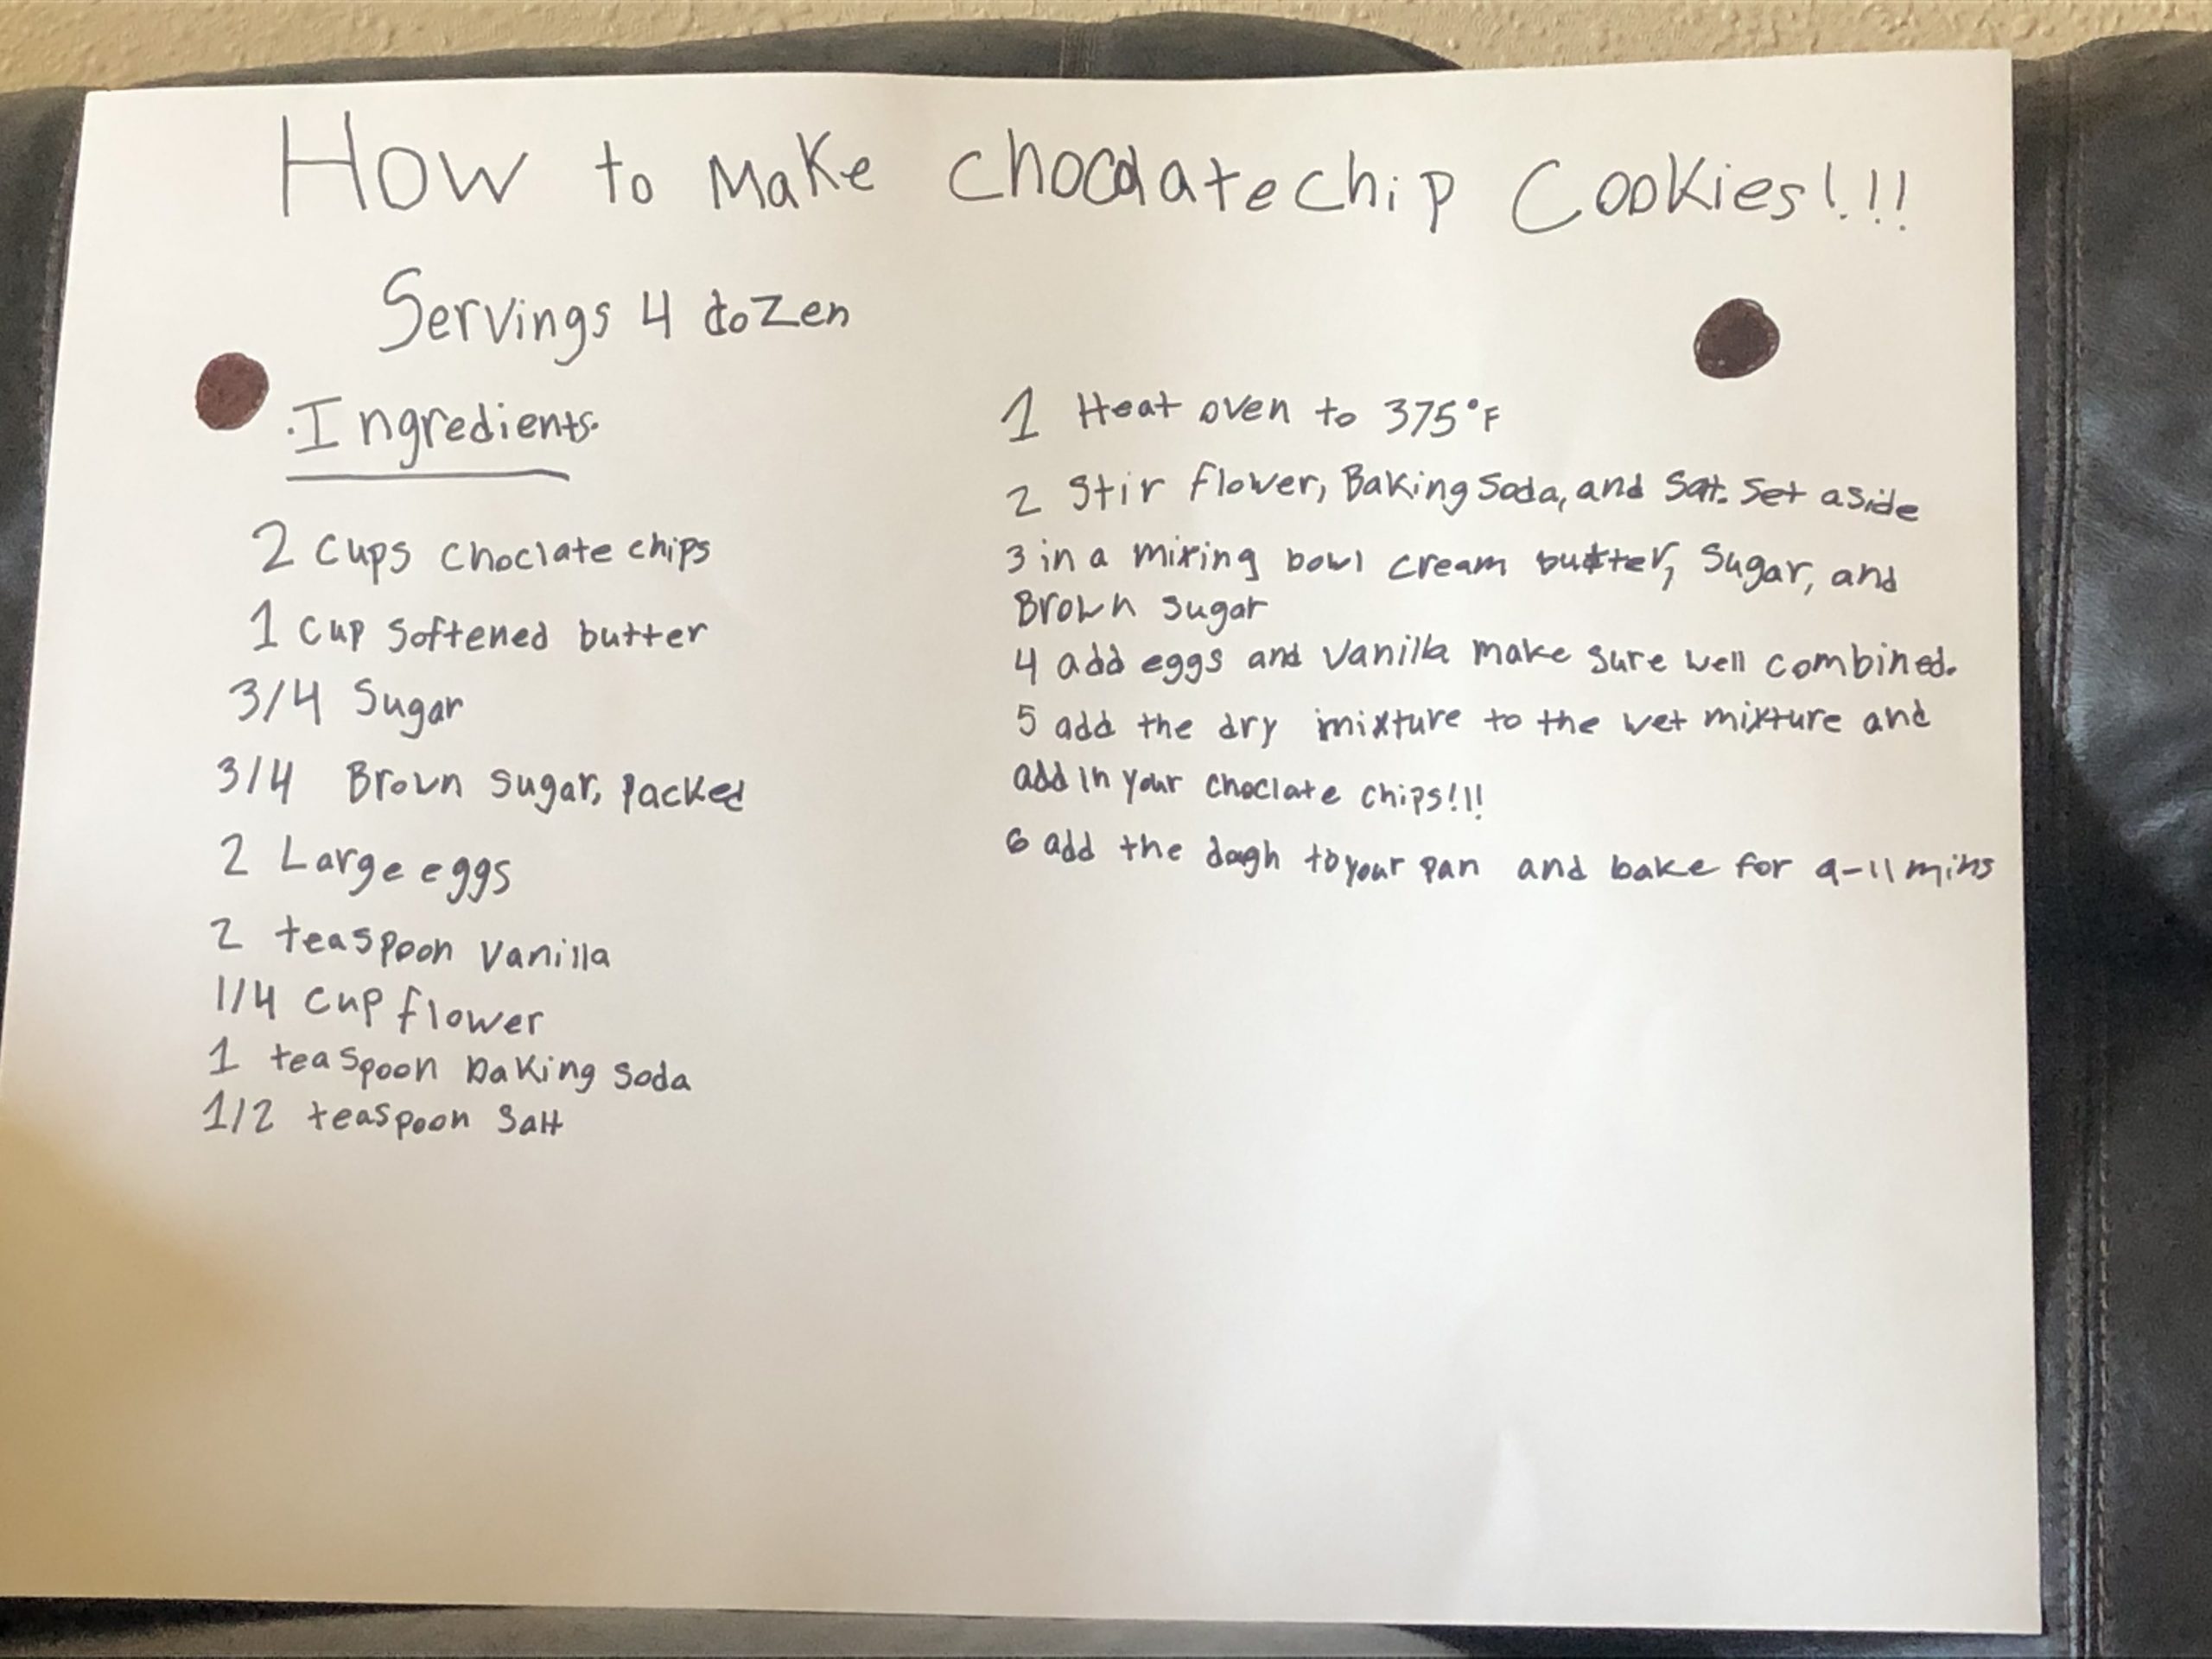 How to Make Choclatechip Cookies!!!
Servings 4 dozen
·Ingredients·
2 cups choclate chips
1 cup softened butter
3/4 Sugar
3/4 Brown sugar, packed
2 Large eggs
2 teaspoon vanilla
1/4 cup flower
1 teaspoon baking soda
1/2 teaspoon salt
1 Heat oven to 375°F
2 Stir flower, Baking soda, and Salt. Set aside
3 in a mixing bowl cream butter, sugar, and
Brown sugar
4 add eggs and vanilla make sure well combined.
5 add the dry mixture to the wet mixture and
add in your choclate chips!!!
6 add the dogh to your pan and bake for 9-11 mins